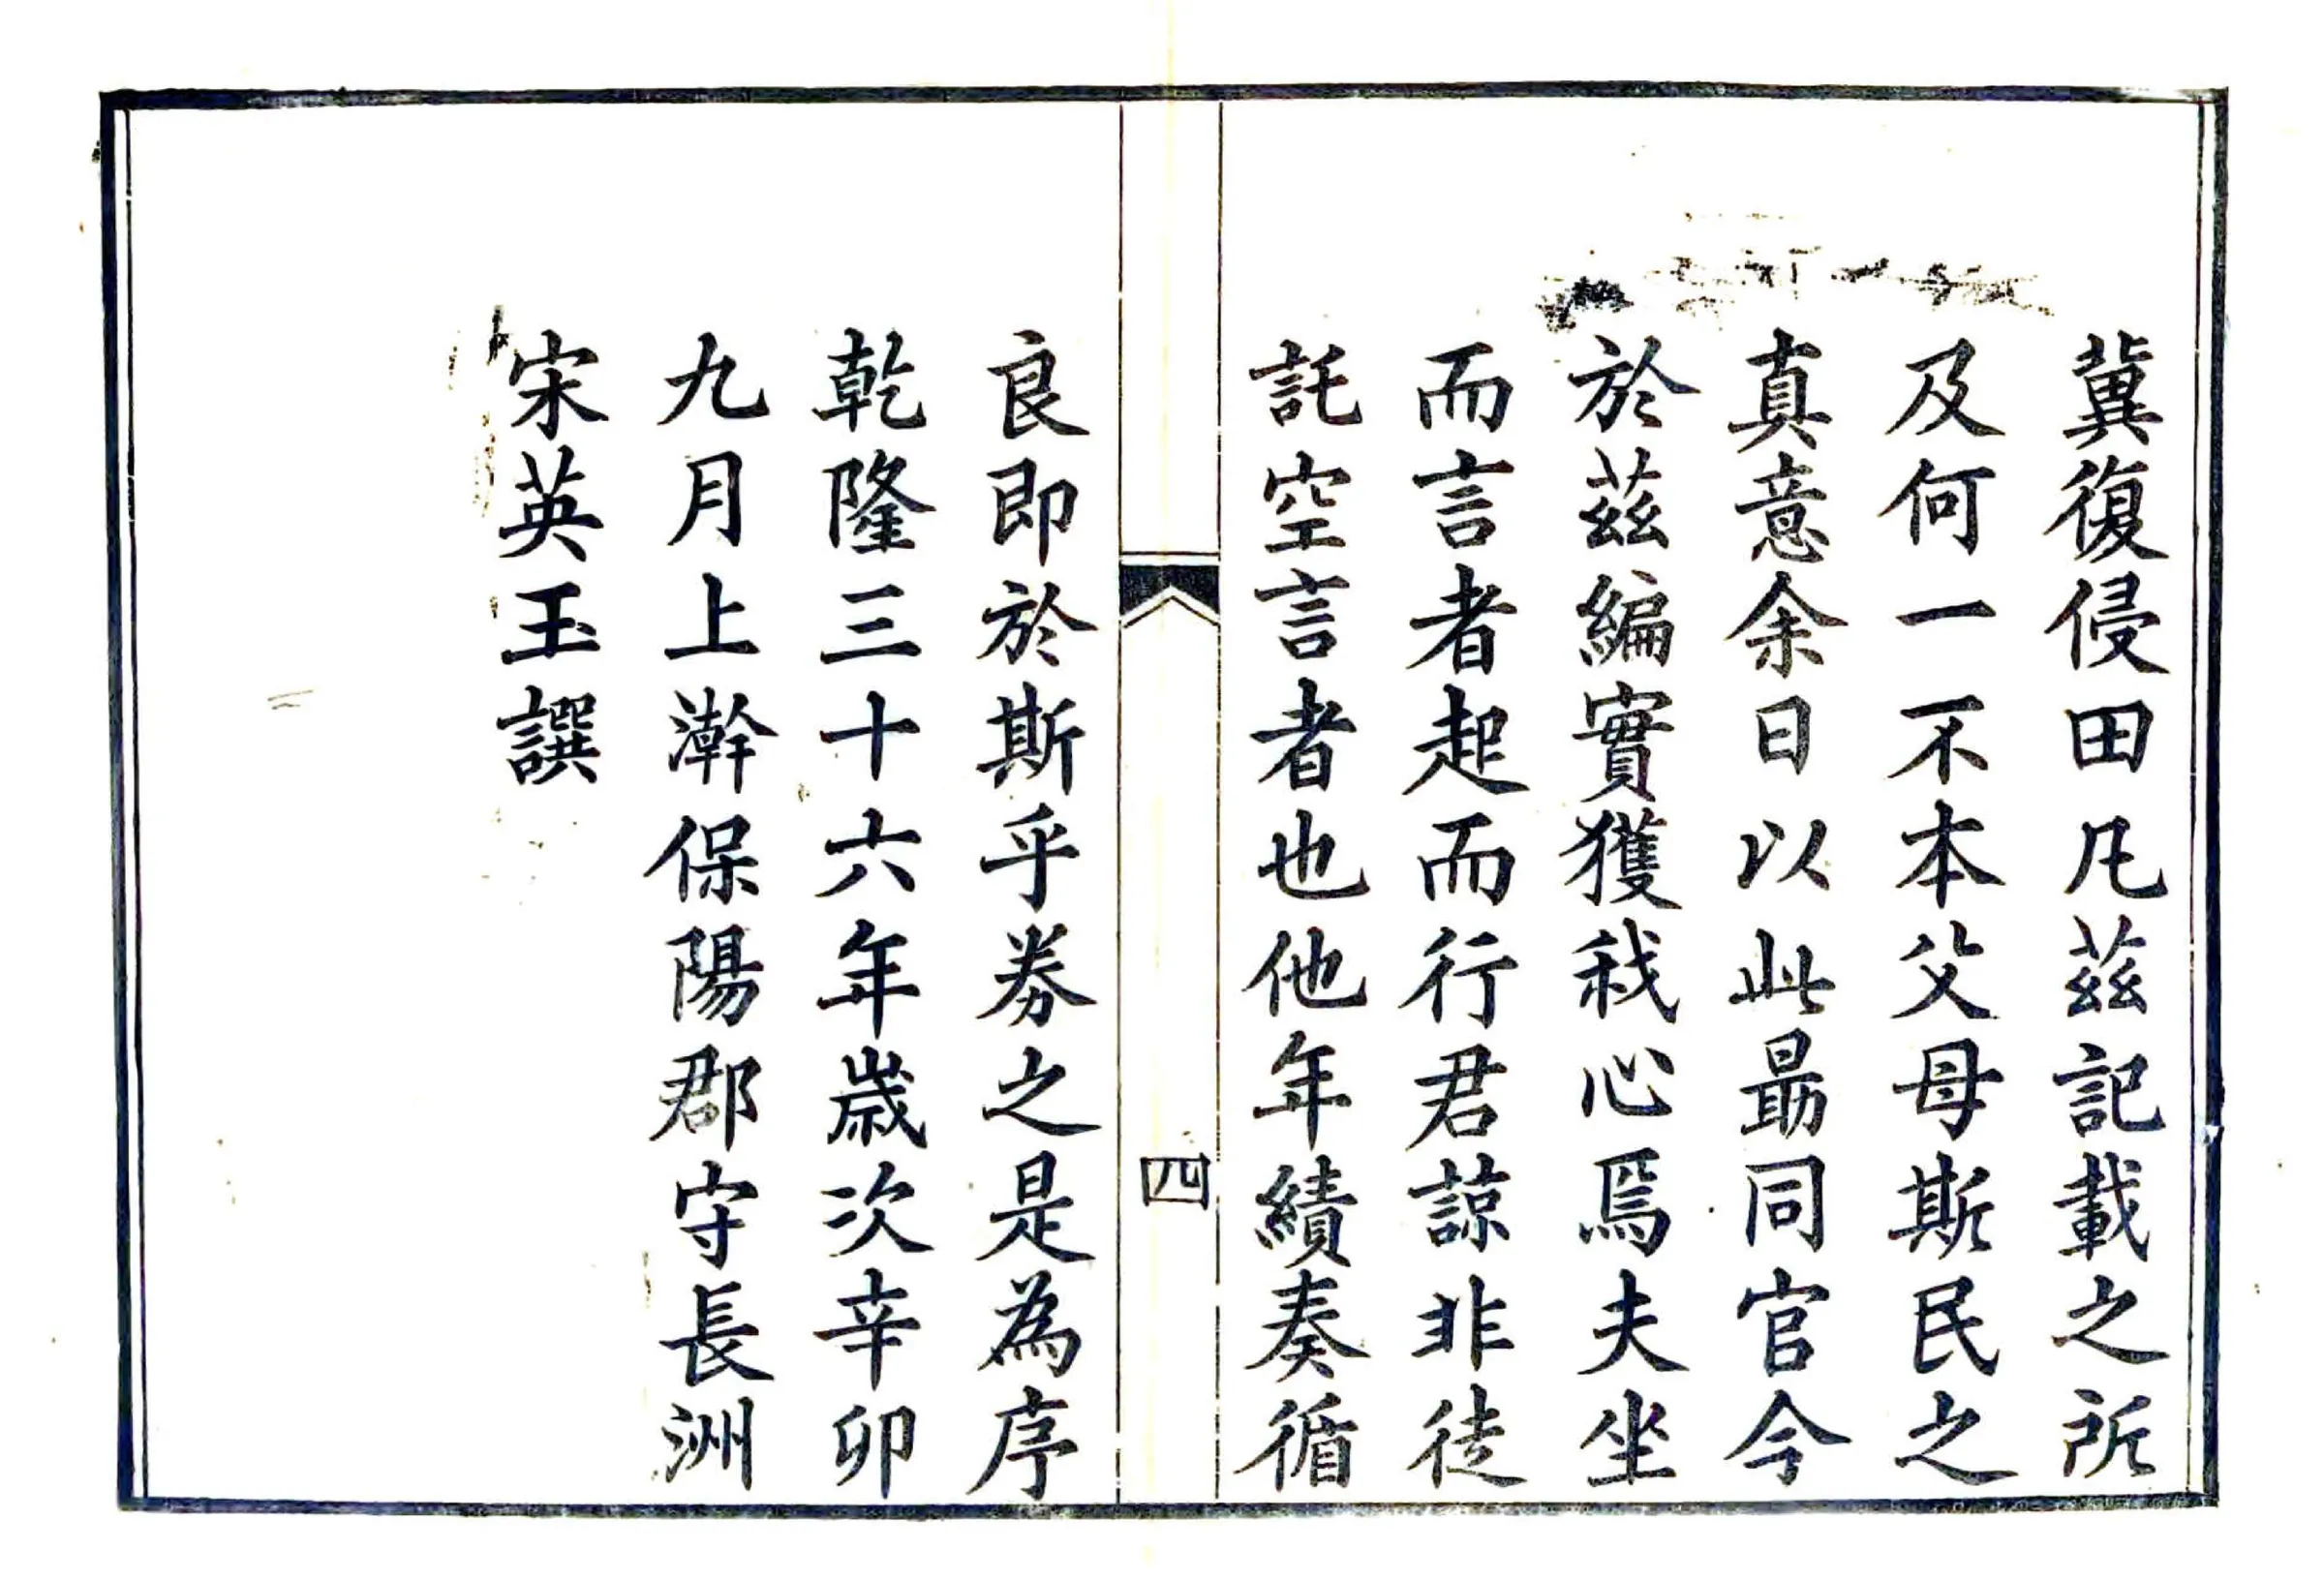 冀復侵田凡茲記載之所
及何一不本父母斯民之
真意余曰以此勗同官今
於茲編實獲我心焉夫坐
而言者起而行君諒非徒
託空言者也他年績奏循
四
良即於斯乎券之是為序
乾隆三十六年歲次辛卯
九月上澣保陽郡守長洲
宋英玉譔